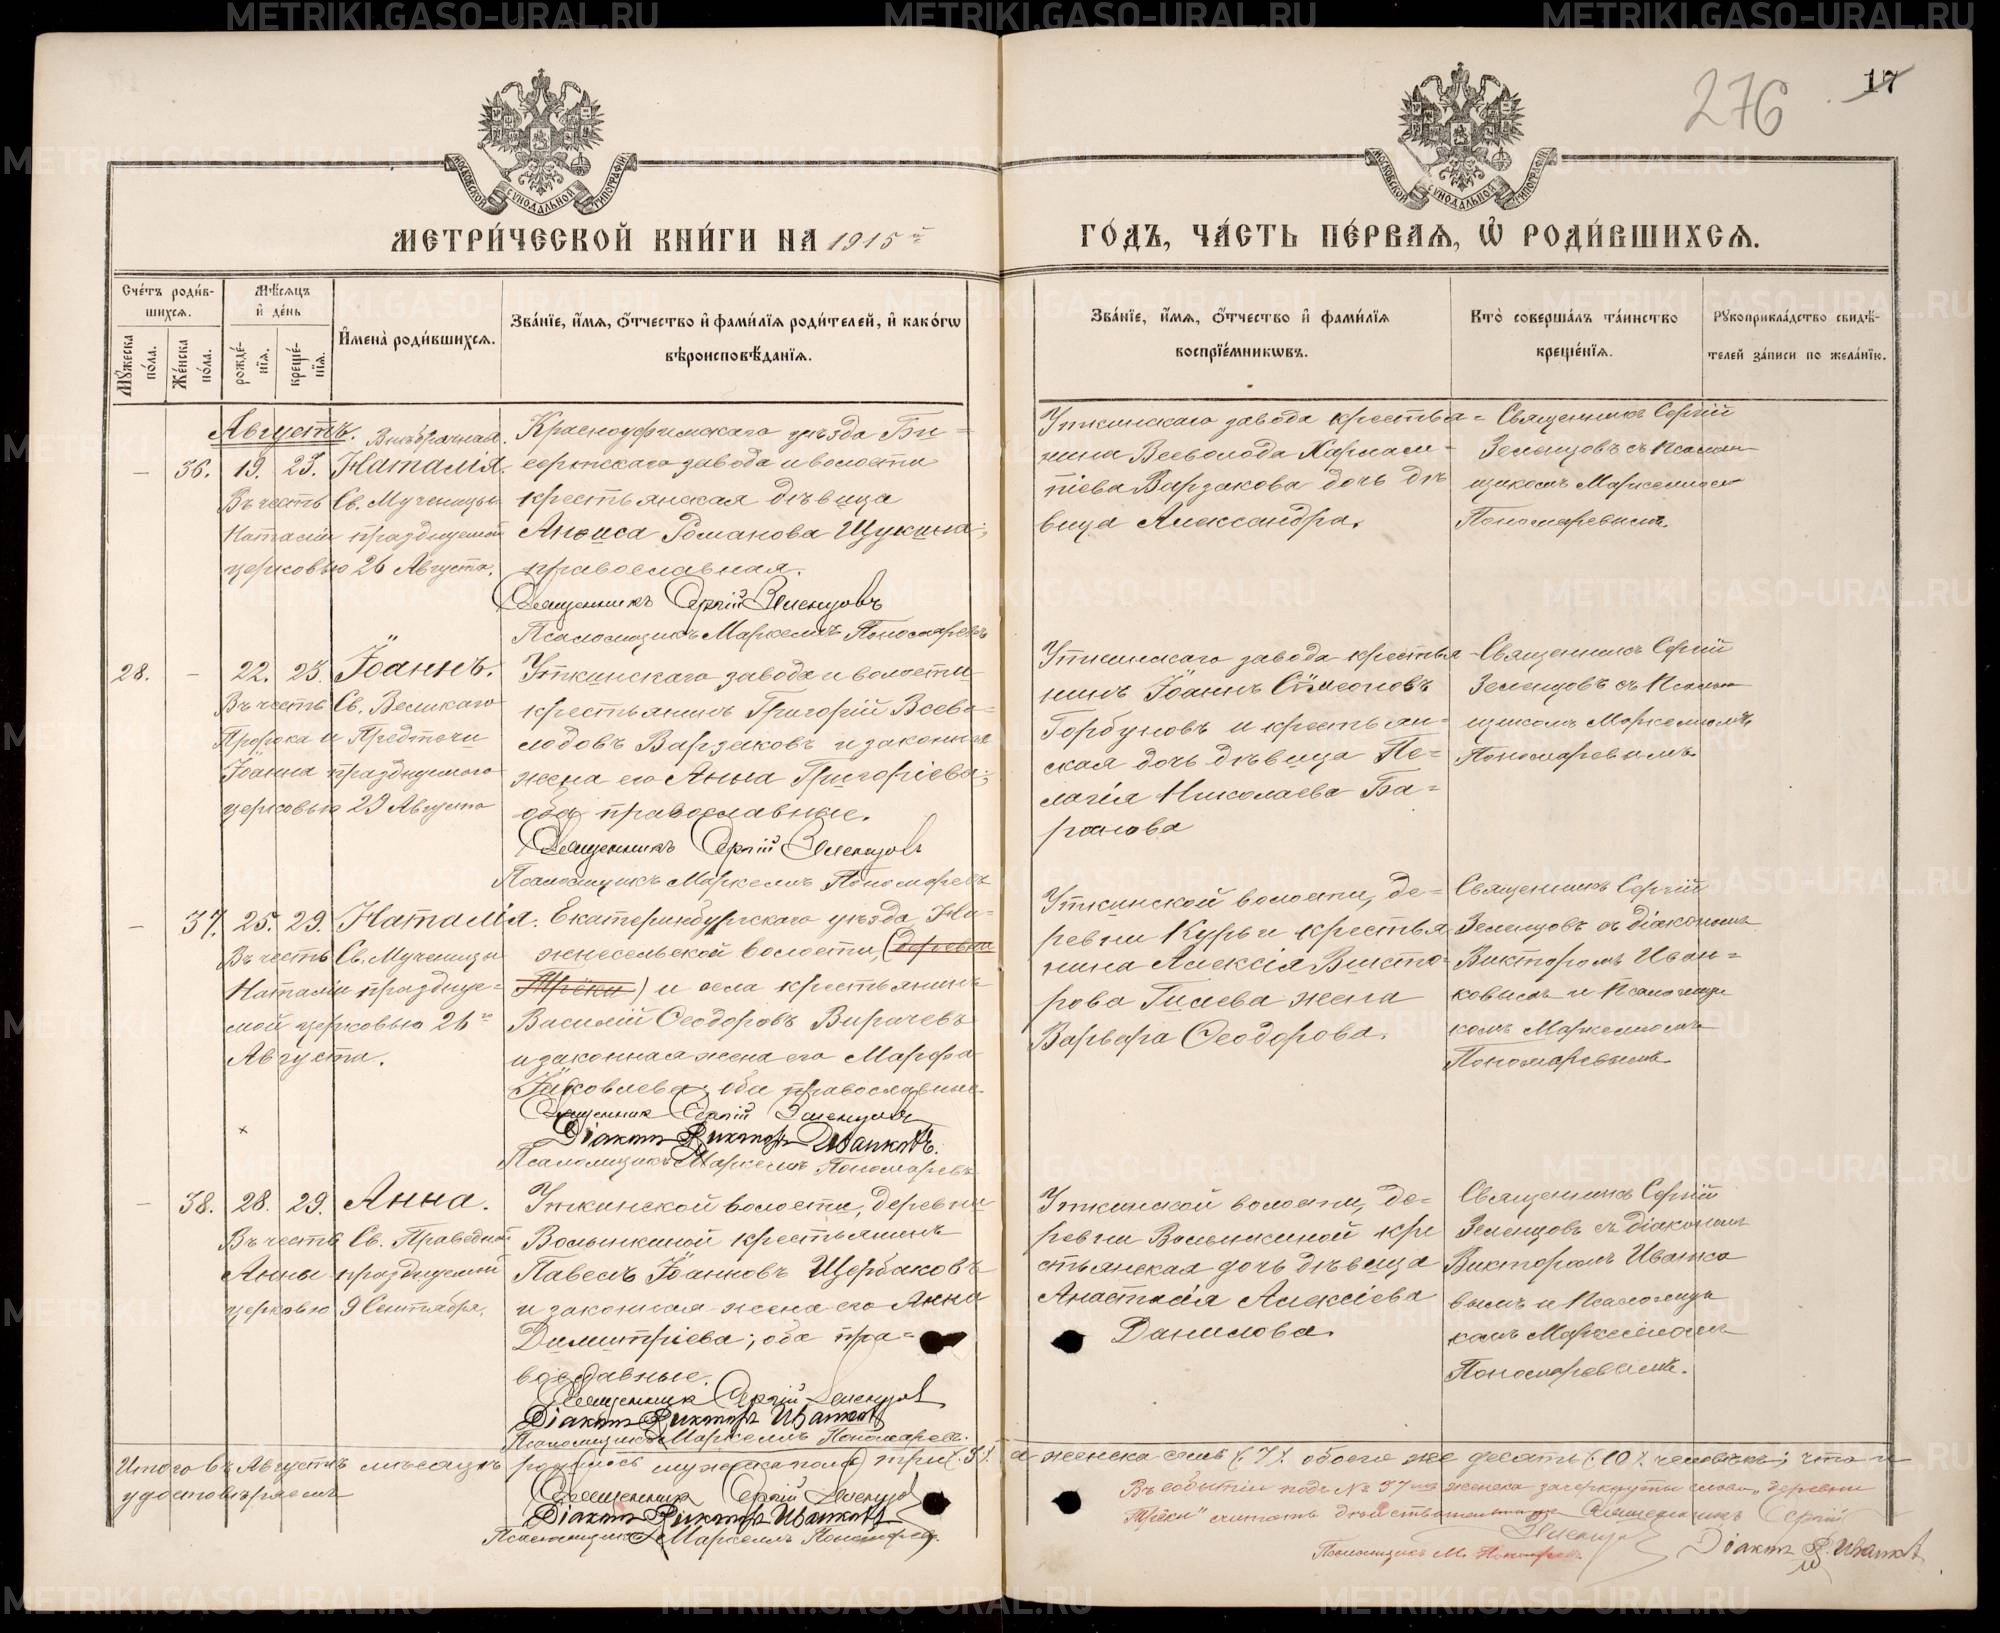 276
17
МОСКОВСКОЙ СѴНОДАЛЬНОЙ ТИПОГРАФІИ
МОСКОВСКОЙ СѴНОДАЛЬНОЙ ТИПОГРАФІИ
МЕТРИ́ЧЕСКОЙ КНИ́ГИ НА 1915й
ГО́ДЪ, ЧА́СТЬ ПЕ́РВАѦ, Ѡ҆ РОДИ́ВШИХСѦ.
Сче́тъ роди́в-
шихсѧ.
Мꙋ́жеска по́ла.
Же́нска по́ла.
Мѣ́сѧцъ
и҆ де́нь
рожде́-
нїѧ.
креще́-
нїѧ.
И҆мена̀ роди́вшихсѧ.
Зва́нїе, и҆́мѧ, ѻ҆́тчество и҆ фами́лїѧ роди́телей, и҆ како́гѡ
вѣроисповѣ́данїѧ.
Зва́нїе, и҆́мѧ, ѻ҆́тчество и҆ фами́лїѧ
воспрїе́мникѡвъ.
Кто̀ соверша́лъ та́инство
креще́нїѧ.
Рꙋкоприкла́дство свидѣ́-
телей за́писи по жела́нїю.
Августъ. Внѣбрачная.
– 36. 19. 23. Наталія.
Въ честь Св. Мученицы
Наталіи празднуемой
церковью 26 Августа.
Красноуфимскаго уѣзда Би-
сертскаго завода и волости
крестьянская дѣвица
Анѳиса Романова Щукина;
православная.
Священникъ Сергій Зеленцовъ
Псаломщикъ Маркеллъ Пономаревъ
Уткинскаго завода крестья-
нина Всеволода Харлам-
піева Варзакова дочь дѣ
вица Александра.
Священникъ Сергій
Зеленцовъ съ Псалом
щикомъ Маркелломъ
Пономаревымъ.
28. – 22. 23. Іоаннъ.
Въ честь Св. Великаго
Пророка и Предтечи
Іоанна празднуемого
церковью 29 Августа
Уткинскаго завода и волости
крестьянинъ Григорій Всево-
лодовъ Варзаковъ и законная
жена его Анна Григоріева;
оба православные.
Священникъ Сергій Зеленцовъ
Псаломщикъ Маркеллъ Пономаревъ
Уткинскаго завода крестья
нинъ Іоаннъ Сѵмеоновъ
Горбуновъ и крестьян-
ская дочь дѣвица Пе-
лагія Николаева Ба-
ранова
Священникъ Сергій
Зеленцовъ съ Псалом
щикомъ Маркелломъ
Пономаревымъ.
– 37. 25. 29. Наталія.
Въ честь Св. Мученицы
Наталіи празднуе-
мой церковью 26го
Августа.
Екатеринбургскаго уѣзда, Ни-
жнесельской волости, (деревни
Трёки) и села крестьянинъ
Василій Ѳеодоровъ Вирачевъ
и законная жена его Марфа
Іаковлева; оба православные.
Священникъ Сергій Зеленцовъ
Діаконъ Викторъ Иванковъ.
Псаломщикъ Маркеллъ Пономаревъ
Уткинской волости, де-
ревни Курьи крестья
нина Алексія Викто-
рова Гилева жена
Варвара Ѳеодорова.
Священникъ Сергій
Зеленцовъ съ діакономъ
Викторомъ Иван-
ковымъ и Псаломщи
комъ Маркелломъ
Пономаревымъ.
– 38. 28. 29. Анна.
Въ честь Св. Праведной
Анны празднуемой
церковью 9 Сентября.
Уткинской волости, деревни
Волынкиной крестьянинъ
Павелъ Іоанновъ Щербаковъ
и законная жена его Анна
Димитріева; оба пра-
вославные.
Священникъ Сергій Зеленцовъ
Діаконъ Викторъ Иванковъ
Псаломщикъ Маркеллъ Пономаревъ.
Уткинской волости, де-
ревни Волынкиной кре
стьянская дочь дѣвица
Анастасія Алексіева
Данилова.
Священникъ Сергій
Зеленцовъ съ діакономъ
Викторомъ Иванко
вымъ и Псаломщи
комъ Маркелломъ
Пономаревымъ.
Итого въ Августѣ мѣсяцѣ родилось мужеска пола три (3) а женска семь (7) обоего же десять (10) человѣкъ; что и
удостовѣряемъ
Священникъ Сергій Зеленцовъ
Діаконъ Викторъ Иванковъ
Псаломщикъ Маркеллъ Пономаревъ.
Въ событіи подъ № 37мъ женска зачеркнуты слова „деревни
Трёки" считать дѣйствительно Священникъ Сергій
Зеленцовъ
Псаломщикъ М. Пономаревъ. Діаконъ В. Иванковъ
METRIKI.GASO-URAL.RU